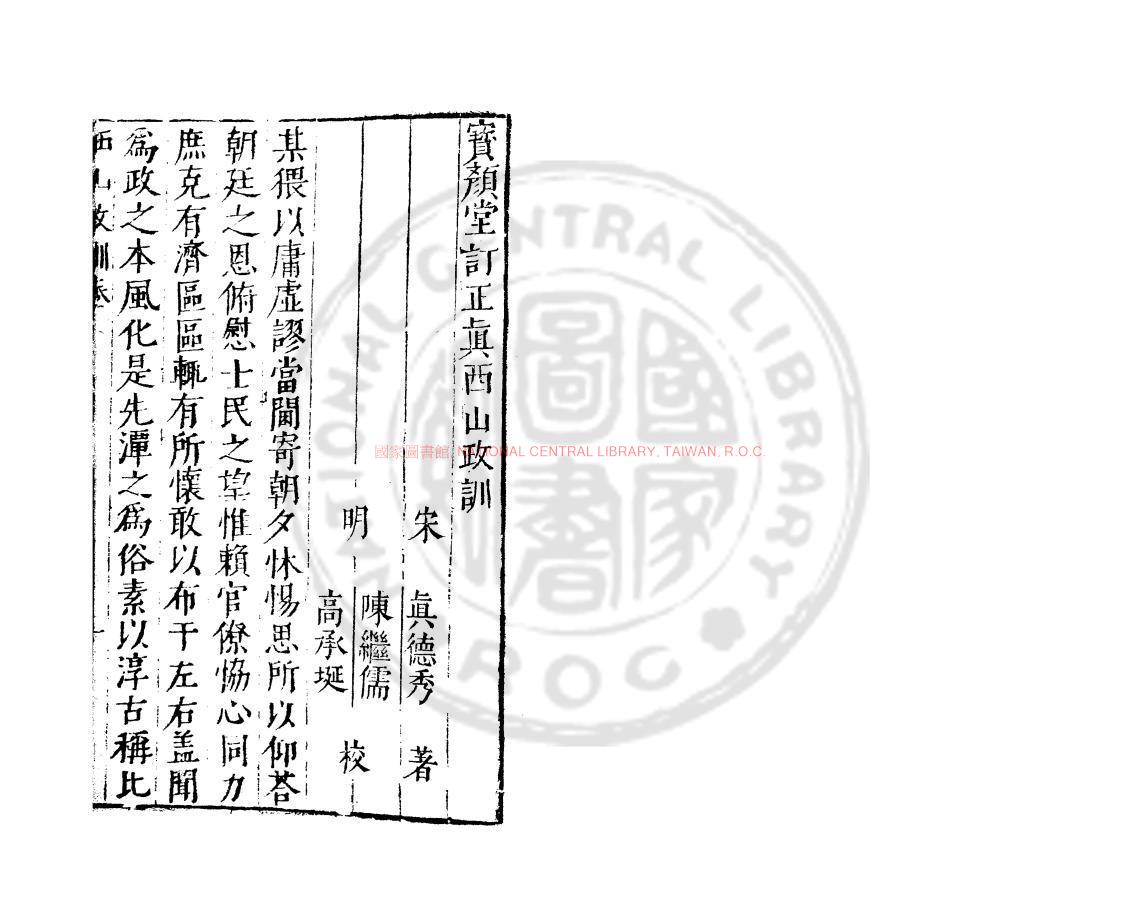 寳顏堂訂正眞西山政訓
宋 眞德秀 著
明 陳繼儒
高承埏 校
某猥以庸虛謬當閫寄朝夕怵惕思所以仰荅
朝廷之恩俯慰士民之望惟賴官僚恊心同力
庶克有濟區區輒有所懷敢以布于左右盖聞
爲政之本風化是先潭之爲俗素以淳古稱比
西山政訓卷
國家圖書館, NATIONAL CENTRAL LIBRARY, TAIWAN, R.O.C.
NATIONAL CENTRAL LIBRARY
R.O.C